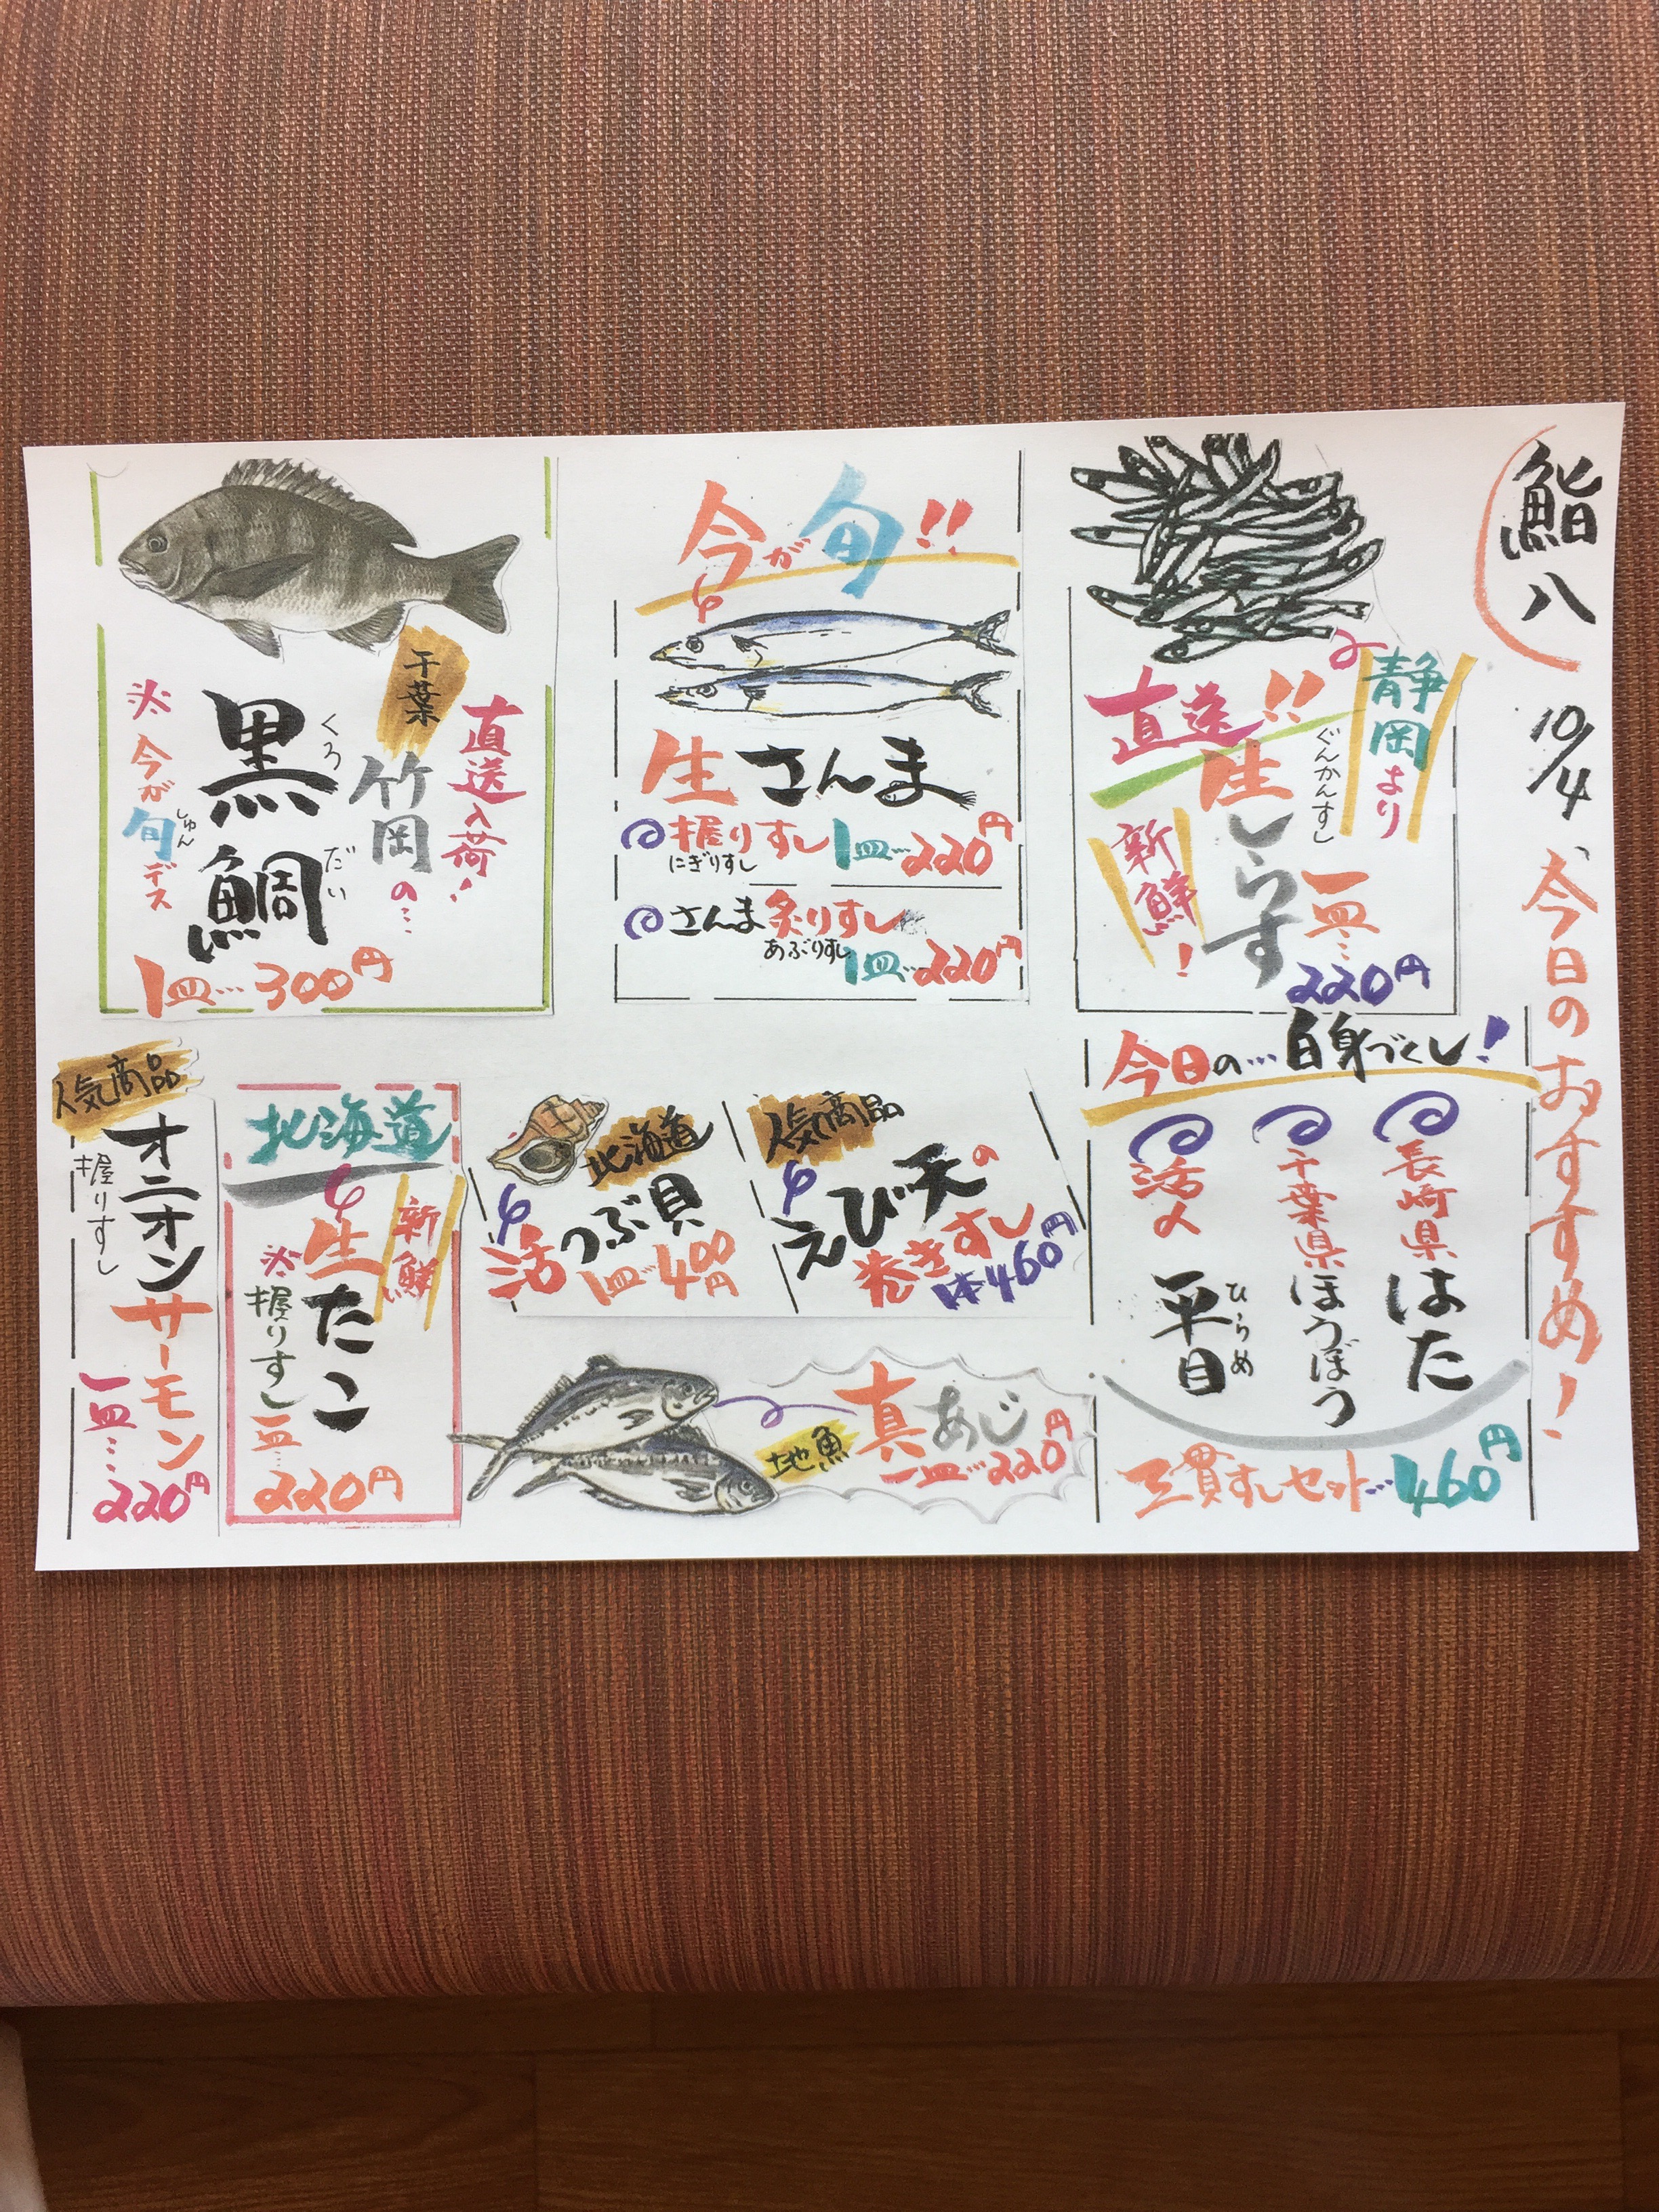 鮨八
10/4
今日のおすすめ!
静岡より
直送!!
生しらす
ぐんかんすし
新鮮!
一皿…220円
今が旬!!
生さんま
握りすし 1皿…220円
にぎりすし
さんま炙りすし
あぶりすし
1皿…220円
直送入荷!
千葉
竹岡の…
黒鯛
くろだい
※今が旬デス
しゅん
1皿…300円
今日の…白身づくし!
長崎県 はた
千葉県 ほうぼう
活〆 平目
ひらめ
三貫すしセット…460円
人気商品
えび天の
巻きすし
1本460円
北海道
活つぶ貝
1皿…400円
真あじ
地魚
一皿…220円
北海道
新鮮
生たこ
※握りすし
一皿…
220円
人気商品
オニオンサーモン
握りすし
一皿…
220円